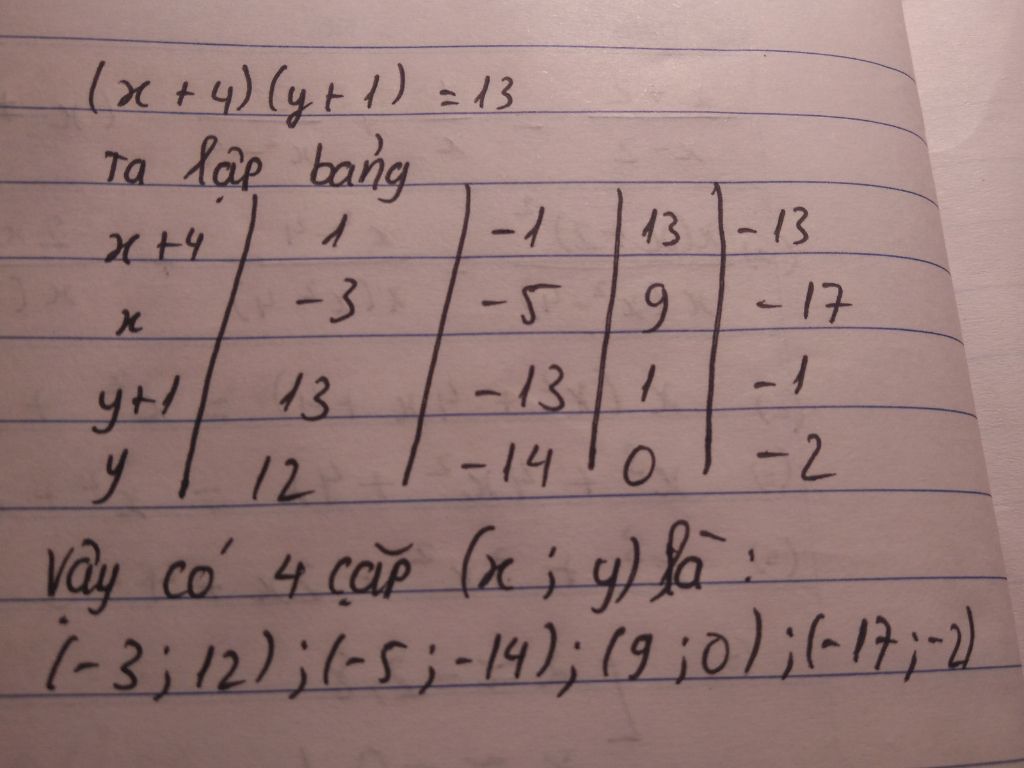 (x + 4)(y + 1) = 13
Ta lập bảng
x + 4 | 1 | -1 | 13 | -13
x | -3 | -5 | 9 | -17
y+1 | 13 | -13 | 1 | -1
y | 12 | -14 | 0 | -2
Vậy có 4 cặp (x ; y) là :
(-3 ; 12) ; (-5 ; -14) ; (9 ; 0) ; (-17 ; -2)